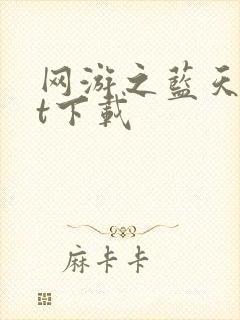 网游之蓝天
t下载
麻卡卡